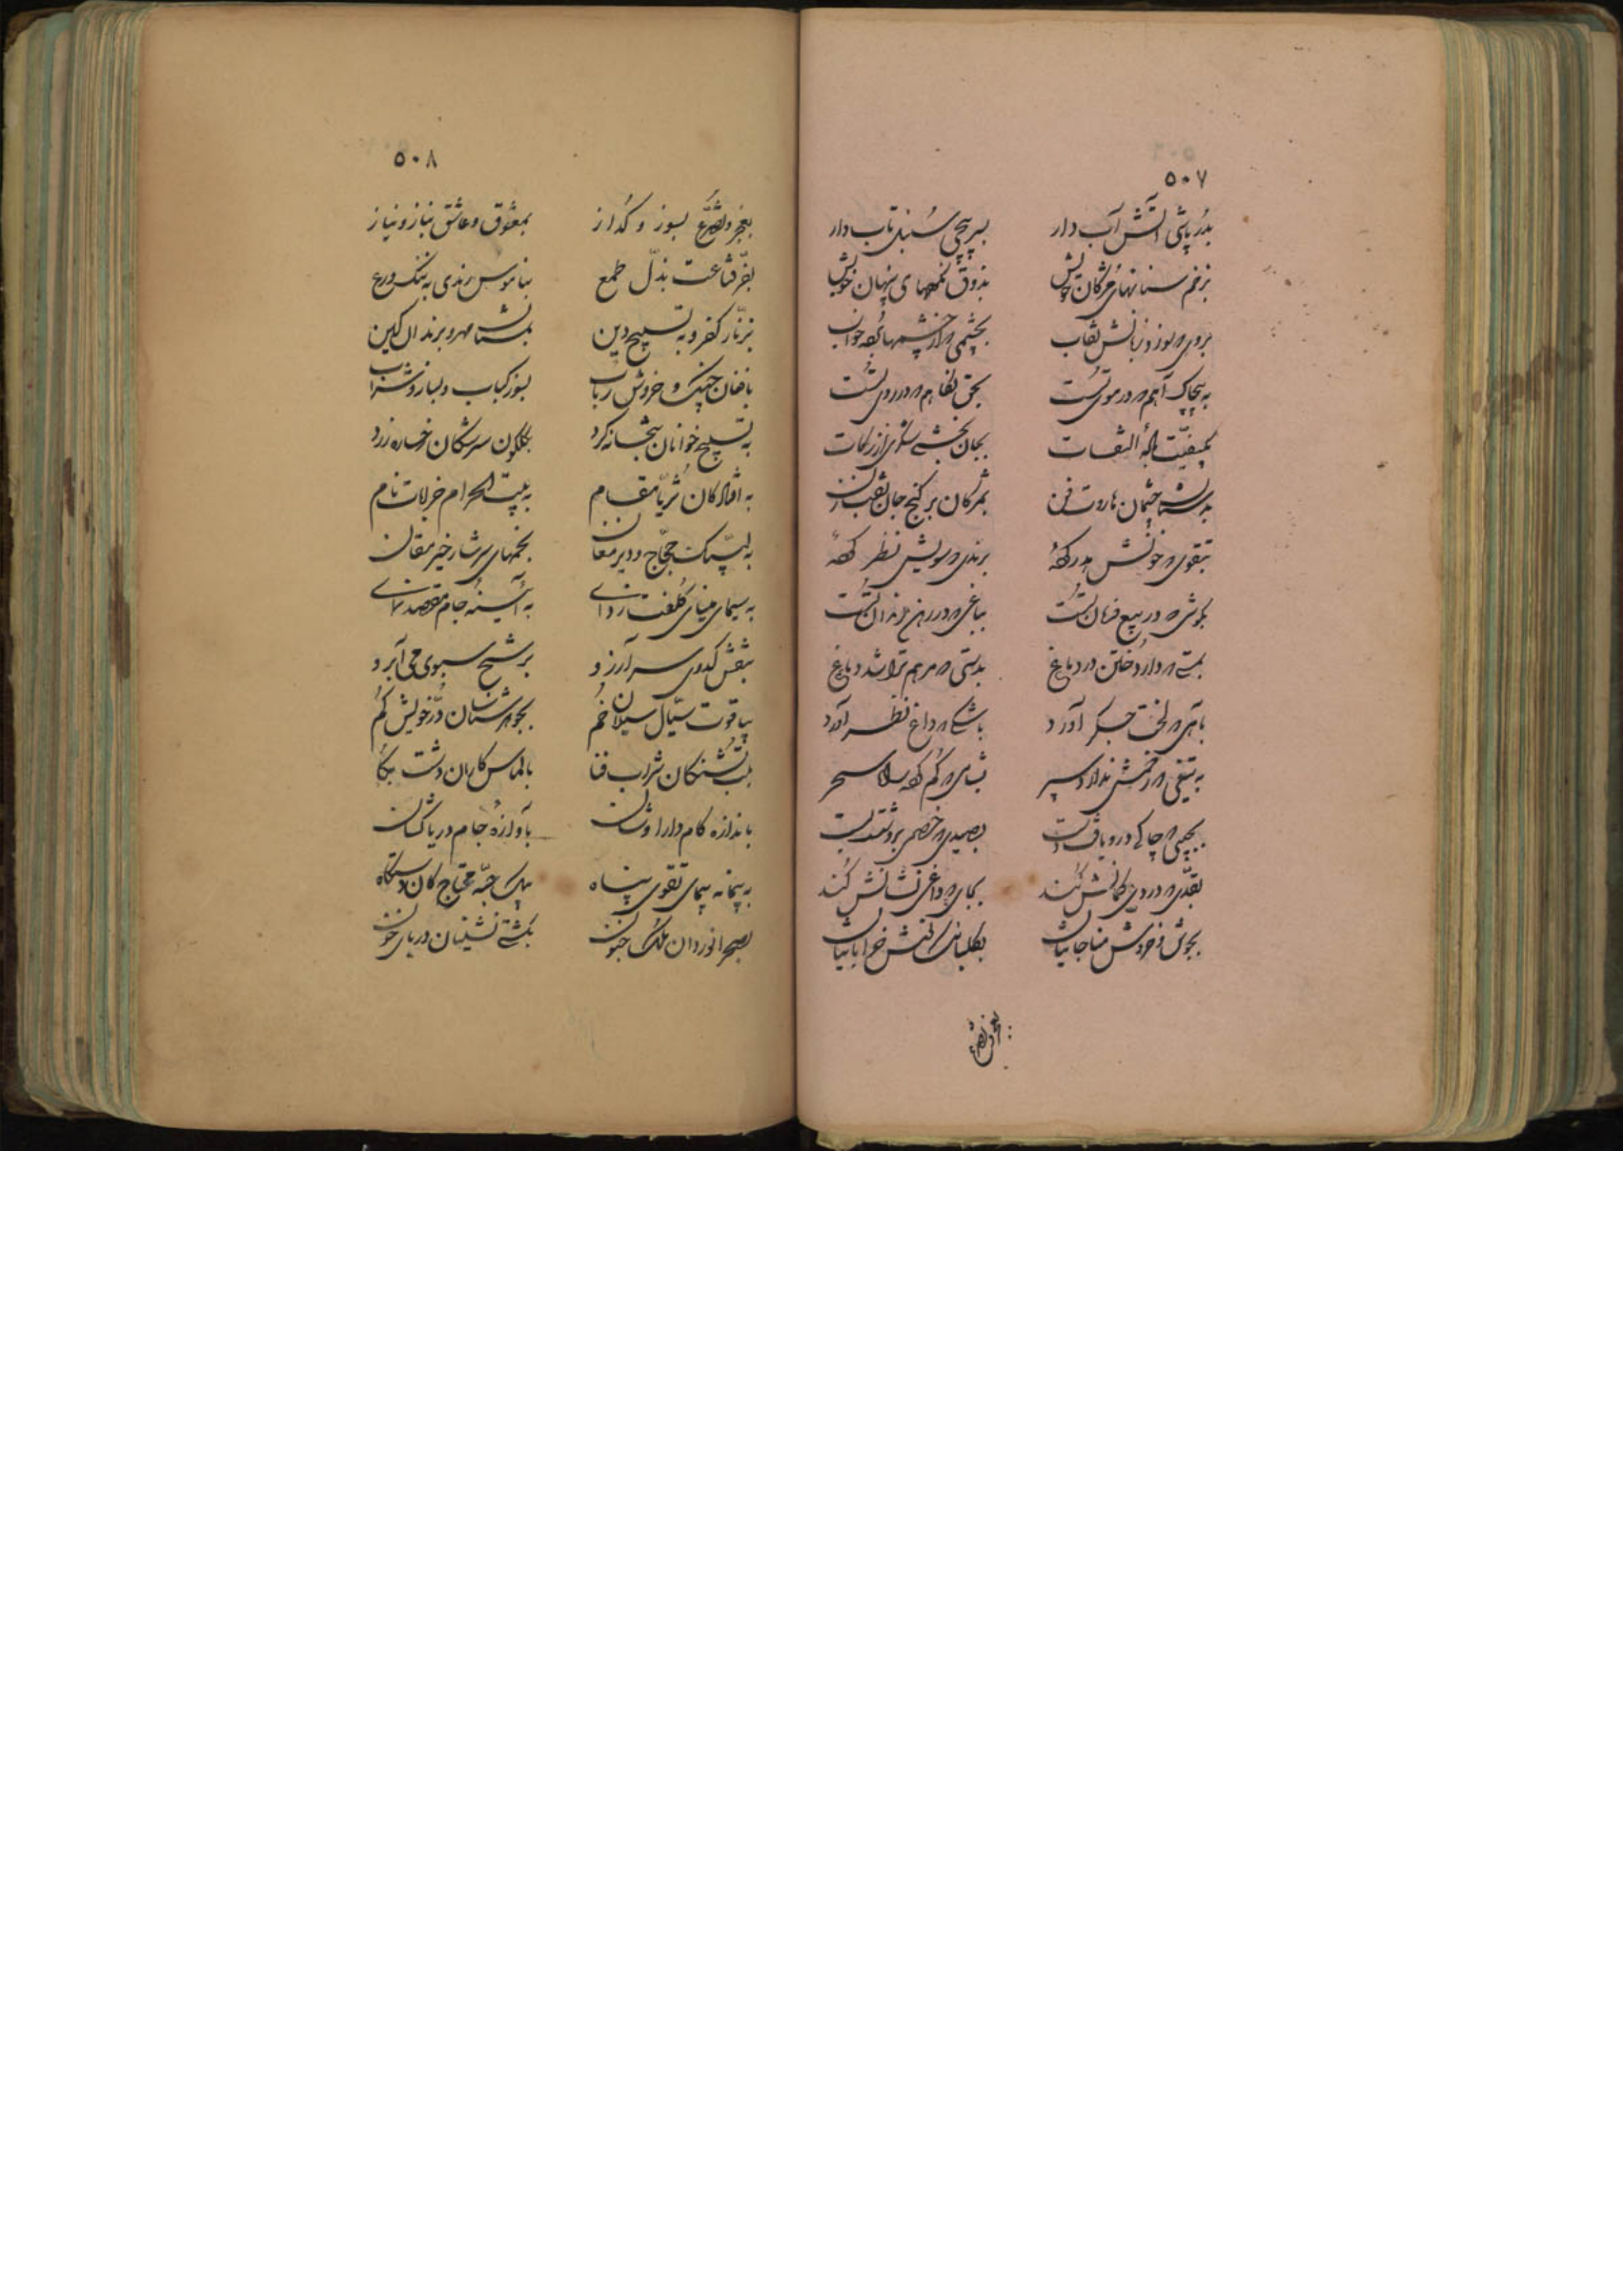 ٥٠٧
بدُر پاشی آتش آب دار بسر پیچی سُنبل تاب دار
بزخم سنانهای مژگان خویش بذوق نگهای پنهان خویش
بروی که بوزد زتابش نقاب بچشمی که از چشمها برد خواب
به پیچاک آهم که در موی تست بحق نگاهم که در روی تست
بکیفیّت بادهٔ التفات بجان بخشی
چشمان هاروت فن بمژگان بر گنج جان نقب زن
بتقوی که خونش هدر برندی که سویش نظر
بهوشی که در بیع فرمان تست بباغی که در رهن دندان تست
بمستی که دارد خُتن در دماغ بدستی که مرهم تراشد ز داغ
بآهی که لخت جگر آورد باشکی که داغ نظر آورد
به تیغی که زخمش ندارد سپر بشامی که گم کرده راه سحر
بجیبی که چاکی درو یافت دست بصیدی که خصمی برو شد نشست
بقدّی که دردی کمانش کند بجایی که داغی نشانش کند
بجوش و خروش مناجاتیان بگلبانگ نوش خراباتیان
بعجز و تضرّع
٥٠٨
بعجز و تضرّع بسوز و گداز بمعشوق و عاشق بناز و نیاز
بعزّ قناعت بذلّ طمع بناموس رندی به ننگ ورع
بزنّار کفر و به تسبیح دین بمستان مهر و برندان کین
بافغان چنگ و خروش رباب بسوز کباب و بساز شراب
به تسبیح خوانان بتخانه کرد بگلگون سرشکان رخساره زرد
به افتادکان ثریّا مقام به بیت الحرام خرابات نام
به لبّیک حجّاج و دیر مغان بخمهای سرشار خیر مقان
به سیمای مینای کلفت زدای به آئینهٔ جام مقصد نمای
بنقش کدوی سر آرزو برشح سبوی می آبرو
بیاقوت سیّال سیلان خُم بجوهرشناسان دُر خویش گم
بلب تشنگان شراب فنا بالماس کاران دشت بکا
باندازه کام دارا وشان باوازهٔ جام دریاکشان
به پیمانه پیمای تقوی پناه بیک حبّه محتاج کان دستگاه
بصحرانوردان ملک جنون بکشتی نشینان دریای خون